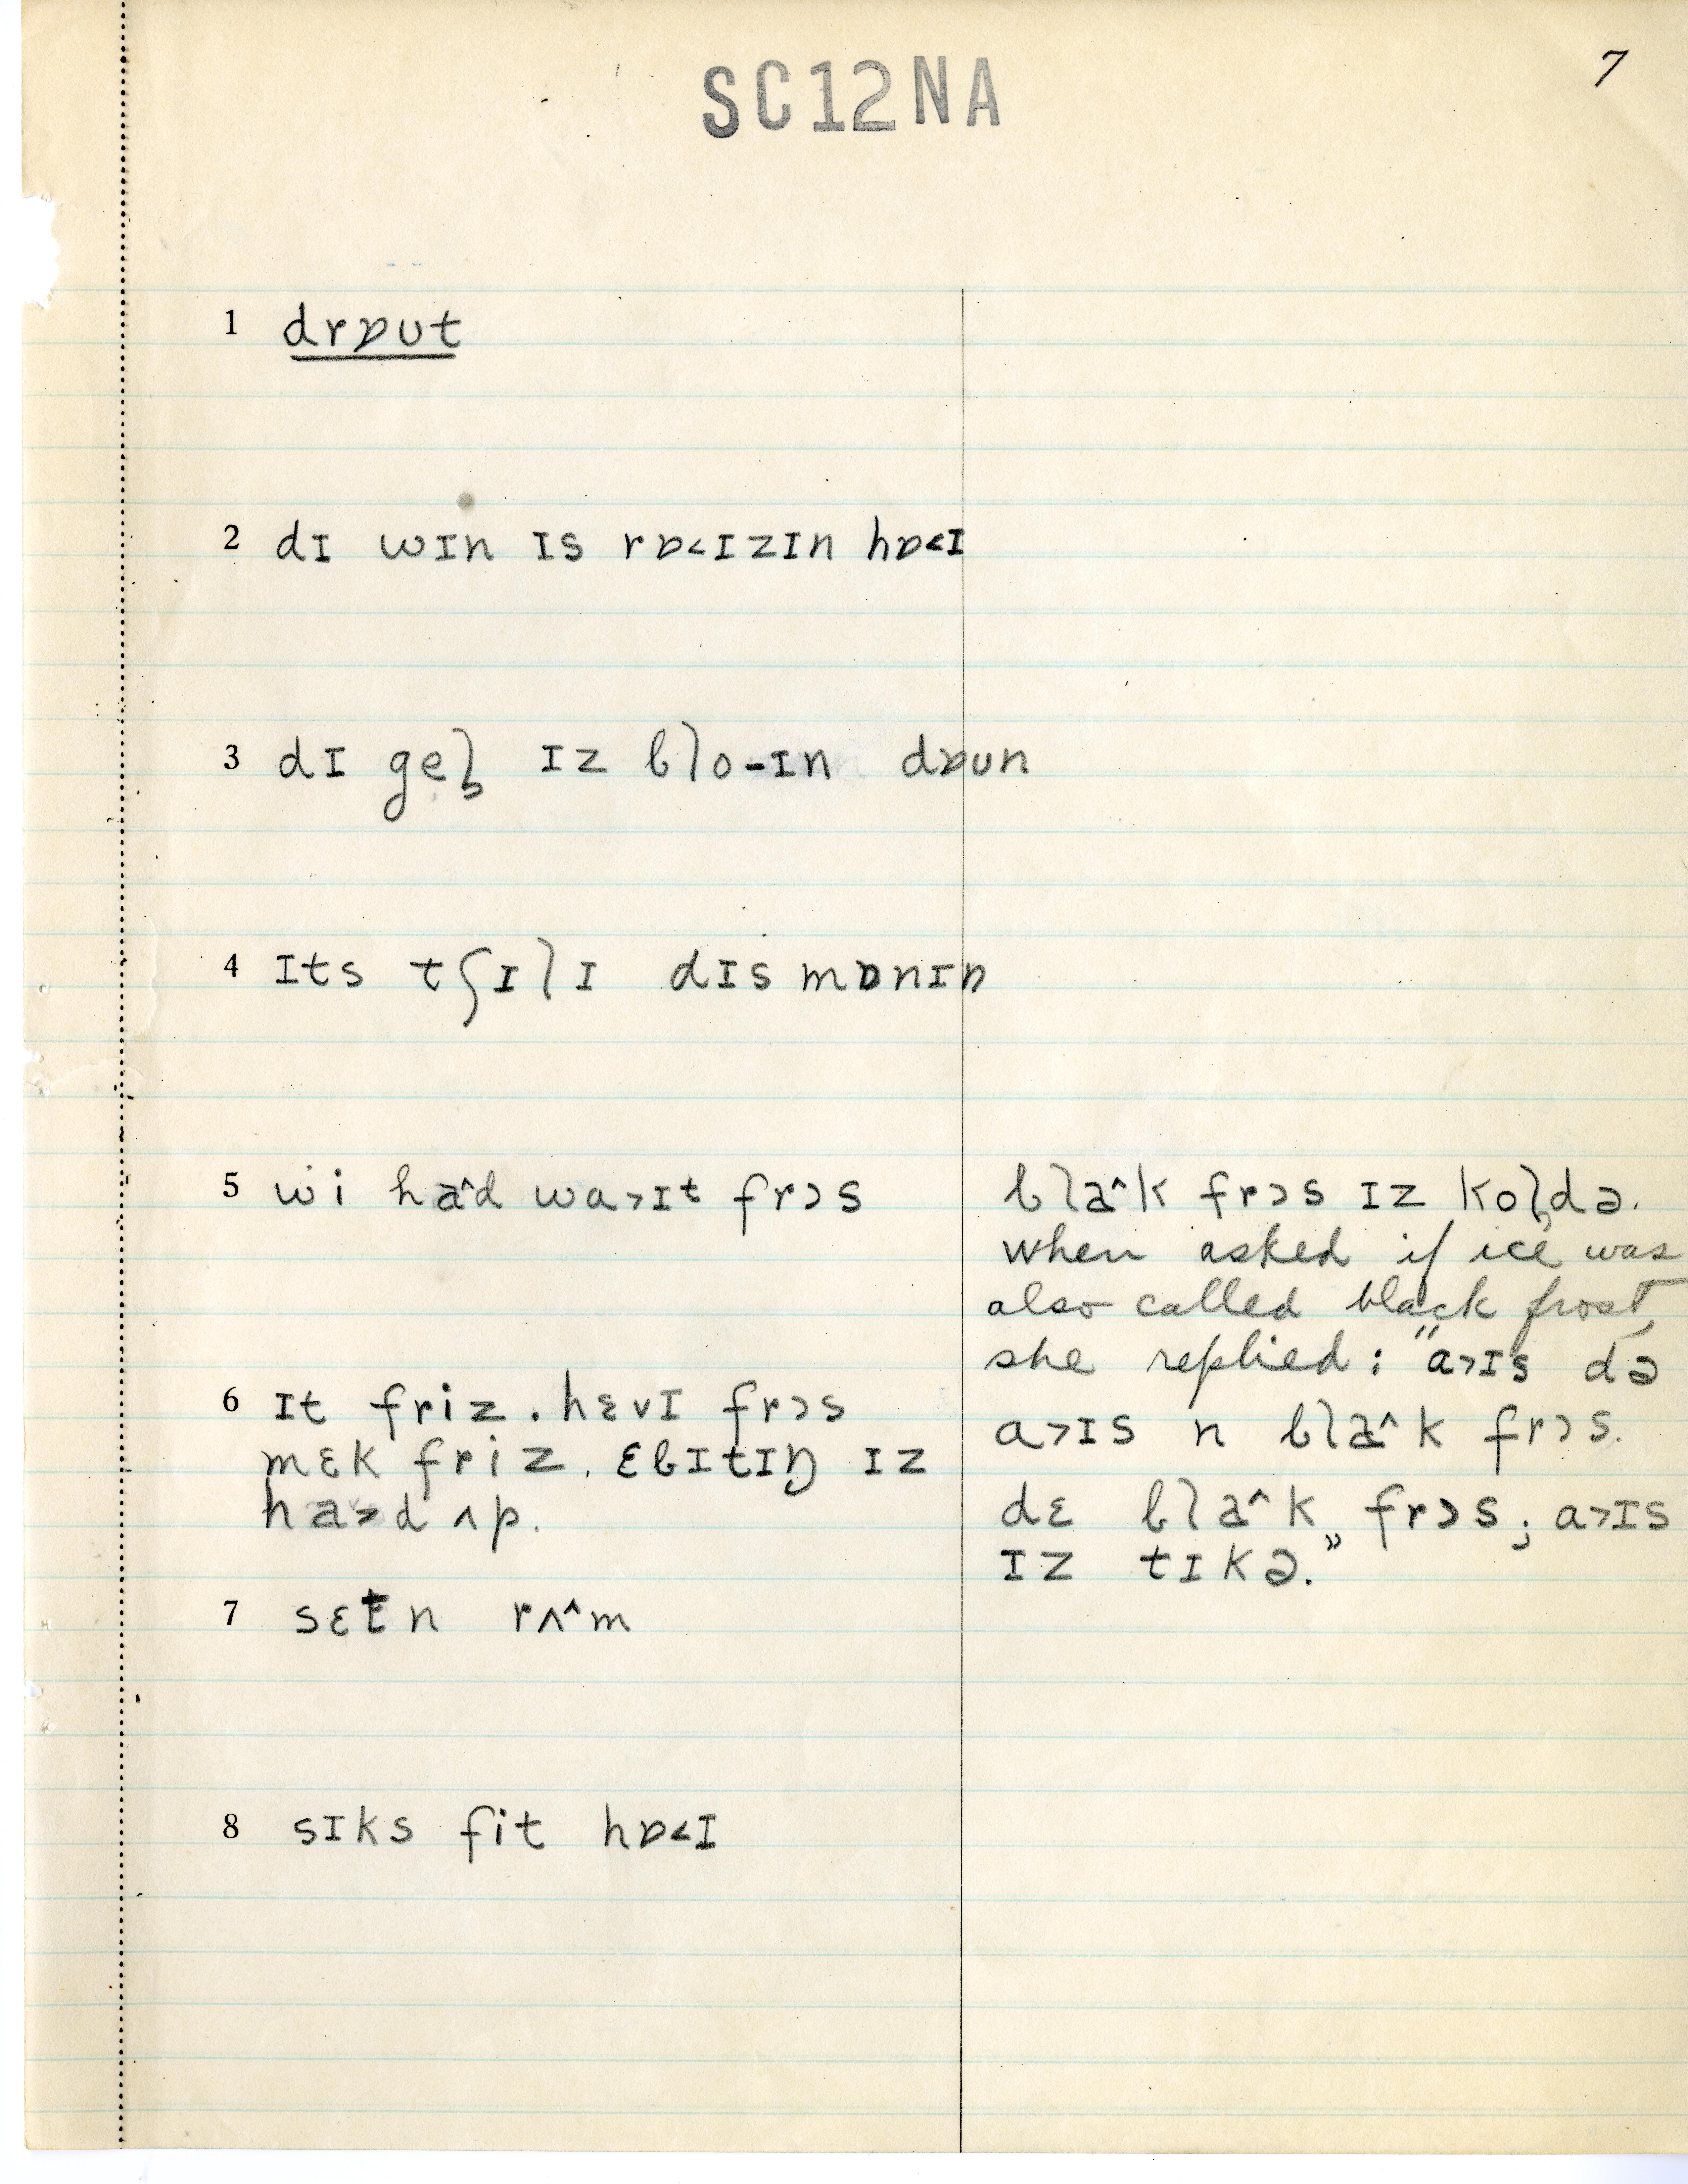 SC12NA
7
1 drɒut
2 dɪ wɪn ɪs rɒ˂ɪzɪn hɒ˂ɪ
3 dɪ geɫ̡ ɪz blo-ɪn dɒun
4 ɪts tʃɪlɪ dɪs mɒnɪn
5 wi ha^d wa˃ɪt frɔs
6 ɪt friz. hɛvɪ frɔs
mɛk friz. ɛbɪtɪŋ ɪz
ha˃d ʌp.
7 sɛtn rʌ^m
8 sɪks fit hɒ˂ɪ
bla^k frɔs ɪz koldə.
when asked if ice was
also called black frost,
she replied: "a˃ɪs də
a˃ɪs n bla^k frɔs.
dɛ bla^k frɔs; a˃ɪs
ɪz tɪkə."